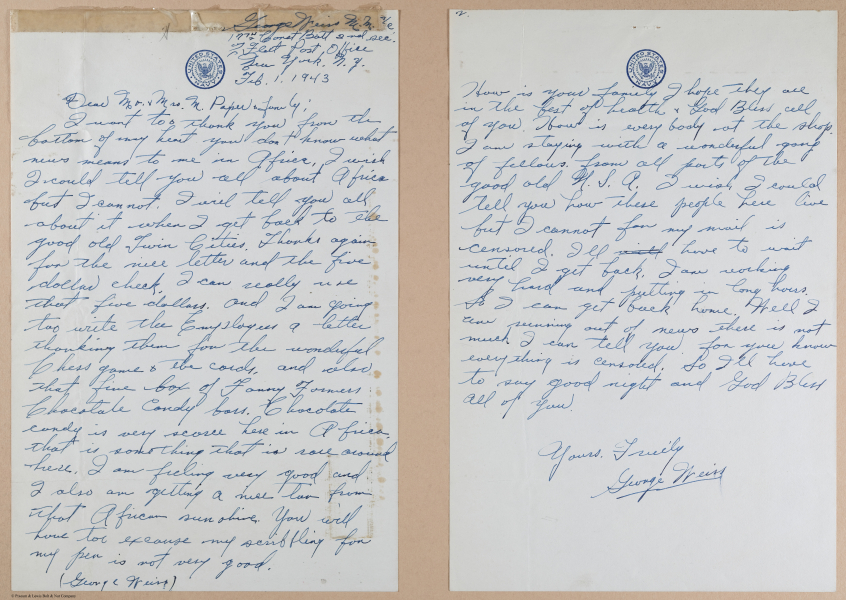 George Weiss M.M. 2/c
17th Const Batt 2nd sec.
℅ Fleet Post Office
New York, N.Y.
Feb. 1. 1943
UNITED STATES
NAVY
Dear Mr. & Mrs. M. Paper & family;
I want too thank you from the
bottom of my heart you don't know what
news means to me in Africa. I wish
I could tell you all about Africa
but I cannot. I will tell you all
about it when I get back to the
good old Twin Cities. Thanks again
for the nice letter and the five
dollar check. I can really use
that five dollars. and I am going
too write the Employees a letter
thanking them for the wonderful
Chess game & the cards, and also
that fine box of Fanny Formers
Chocolate Candy bars. Chocolate
candy is very scarce here in Africa
that is something that is rare around
here. I am feeling very good and
I also am getting a nice tan from
that African sunshine. You will
have too excause my scribbling for
my pen is not very good.
(George Weiss)
© Peasant & Lucas Bols & Nut Company
2.
UNITED STATES
NAVY
How is your family I hope they are
in the best of health & God Bless all
of you. How is every body at the shop.
I am staying with a wonderful gang
of fellows, from all parts of the
good old U.S.A. I wish I could
tell you how these people here live
but I cannot for my mail is
censored. I'll have to wait
until I get back. I am working
very hard and putting in long hours.
So I can get back home. Well I
am running out of news there is not
much I can tell you for you know
everything is censored. So I'll have
to say good night and God Bless
all of you.
Yours, Truily
George Weiss